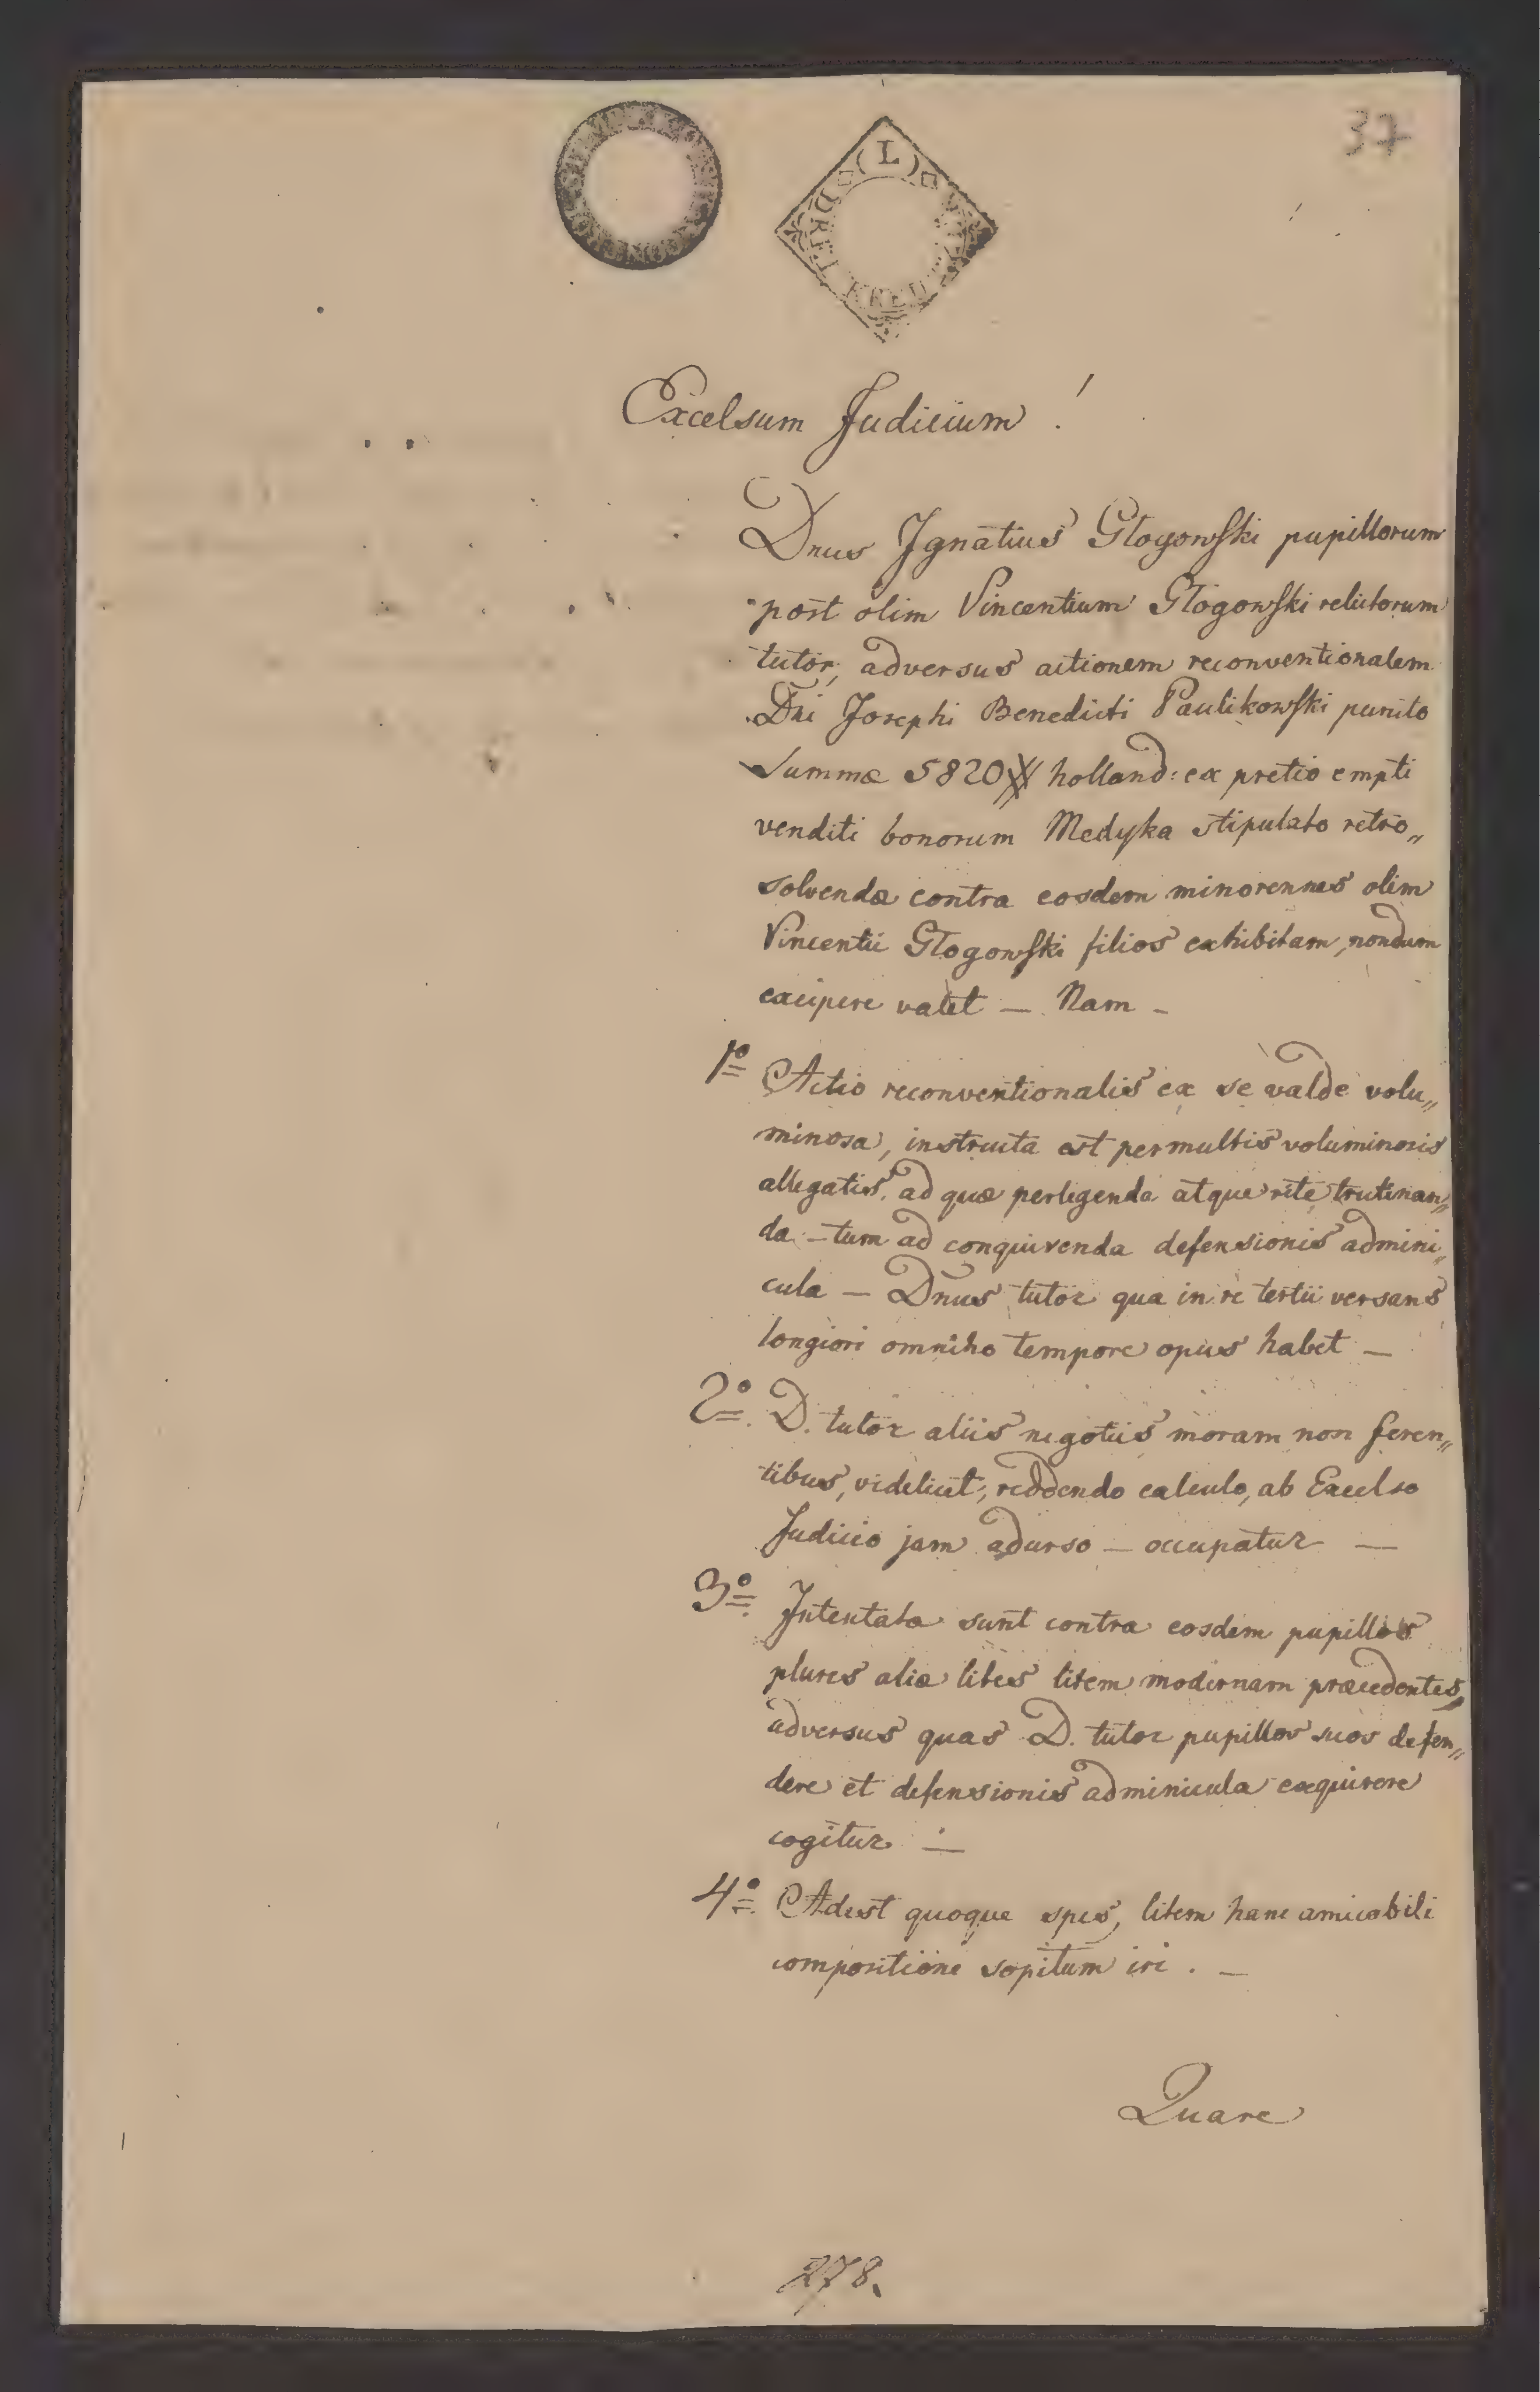 37
(L)
DREI KREU
Excelsum Judicium !
Dnus Ignatius Głogowski pupillorum
post olim Vincentium Głogowski relictorum
tutor, adversus actionem reconventionalem
Dni Josephi Benedicti Paulikowski puncto
Summæ 5820 # holland: ex pretio empti
venditi bonorum Medyka stipulato retro„
solvendæ contra eosdem minorennes olim
Vincentii Głogowski filios exhibitam, nondum
excipere valet — Nam —
1º Actio reconventionalis ex se valde volu„
minosa, instructa est permultis voluminosis
allegatis, ad quæ perlegenda atque rite trutinan„
da — tum ad conquirenda defensionis admini„
cula — Dnus tutor qua in re tertii versans
longiori omnino tempore opus habet —
2º. D. tutor aliis negotiis moram non feren„
tibus, videlicet; reddendo calculo, ab Excelso
Judicio jam adurso — occupatur —
3º Intentata sunt contra eosdem pupillos
plures aliæ lites litem modernam præcedentes,
adversus quas D. tutor pupillos suos defen„
dere et defensionis adminicula exquirere
cogitur —
4º Adest quoque spes, litem hanc amicabili
compositione sopitum iri . —
Quare
278.